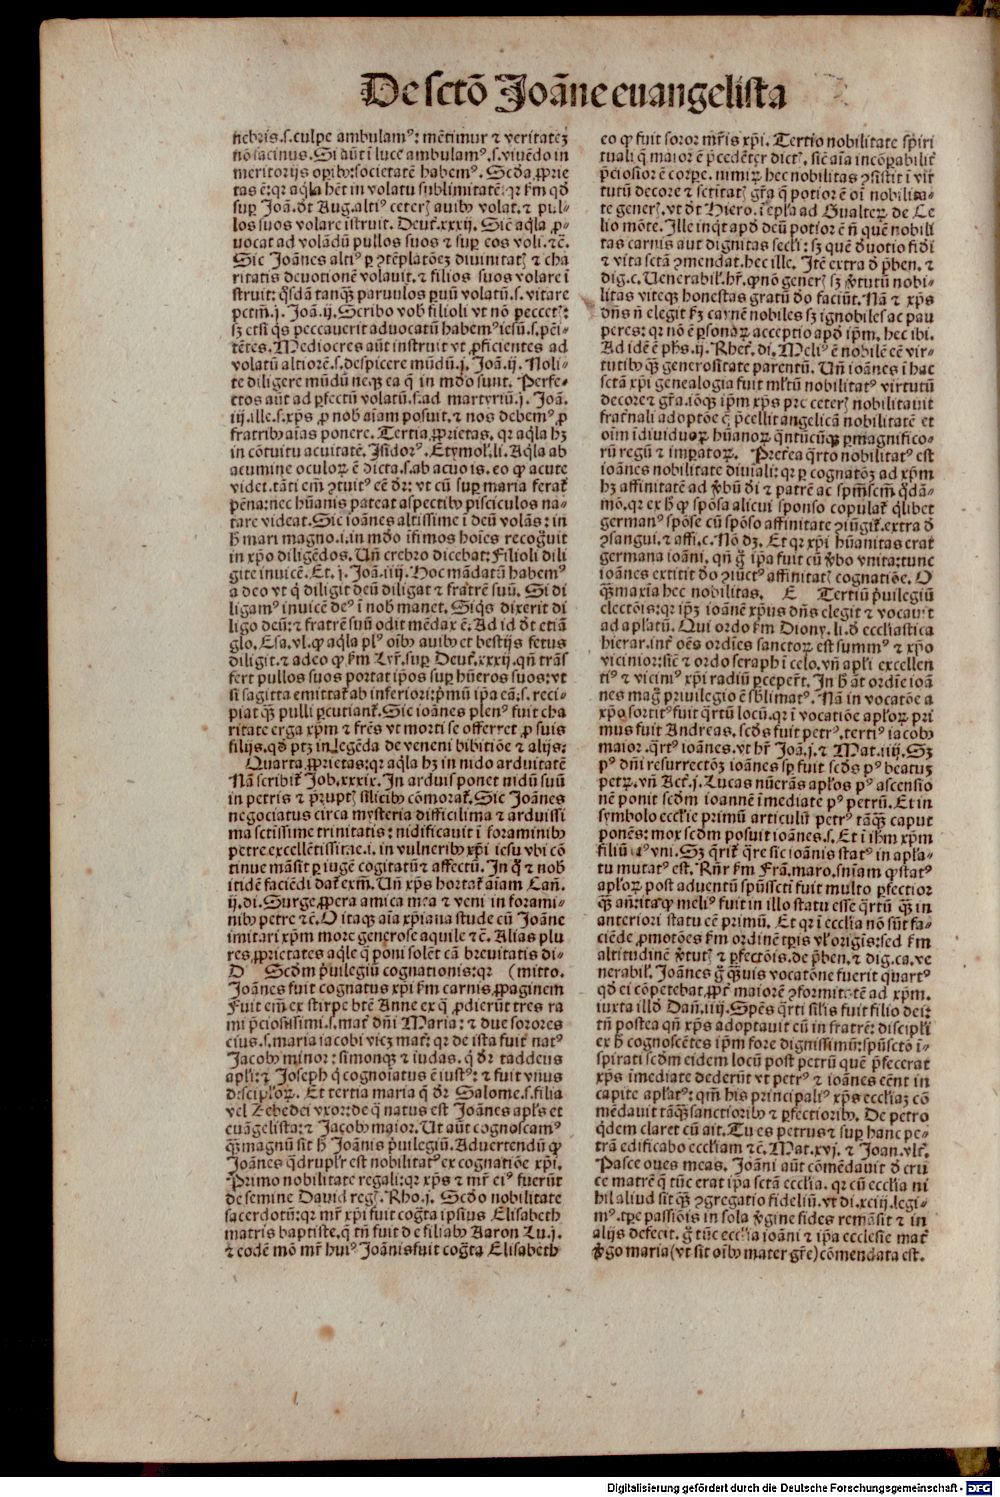 De sctō Joāne euangelista
nebris.s.culpe ambulamꝰ: mētimur ⁊ veritatez
nō facimus. Si aūt ī luce ambulamꝰ.s.viuēdo in
meritorijs opībꝰ: societatē habemꝰ. Scd̄a ꝓprie
tas ē: qr aq̄la hēt in volatu sublimitatē: qr ẜm qd̄
suꝑ Joā. dt̄ Aug. altiꝰ ceterꝭ auibꝰ volat. ⁊ pul-
los suos volare īstruit. Deut̄.xxxij. Sic̄ aq̄la ꝓ-
uocat ad volādū pullos suos ⁊ suꝑ eos voli. ⁊c̄.
Sic Joānes altiꝰ ꝑ ꝯtēplatōez diuinitatꝭ ⁊ cha
ritatis deuotionē volauit. ⁊ filios suos volare ī
struit: q̄sdā tanqꝫ paruulos ꝑuū volatū.s. vitare
pctm̄.j. Joā.ij. Scribo vob̄ filioli vt nō peccetꝭ:
sꝫ etsi q̄s peccauerit aduocatū habemꝰ iesū.s. pēi-
tētes. Mediocres aūt instruit vt ꝓficientes ad
volatū altiorē.s. despicere mūdū.j. Joā.ij. Noli-
te diligere mūdū neqꝫ ea q̄ in mdo sunt. Perfe-
ctos aūt ad ꝑfectū volatū.s. ad martyriū.j. Joā.
iij. ille.s. xp̄s ꝓ nob̄ aīam posuit. ⁊ nos debemꝰ ꝓ
fratribꝰ aīas ponere. Tertia ꝓprietas. qr aq̄la hꝫ
in cōtuitu acuitatē. Isidorꝰ. Etymol̄. li. Aq̄la ab
acumine oculoꝝ ē dicta.s. ab acuo is. eo ꝙ acute
videt. tāti em̄ ꝯtuitꝰ eē dr̄: vt cū suꝑ maria ferat̄
pēna: nec hūanis pateat aspectibꝰ pisciculos na-
tare videat. Sic ioānes altissime ī deū volās: in
h̄ mari magno.i. in mdo īfimos hoīes recogūit
in xp̄o diligēdos. Un̄ crebro dicebat: Filioli dili
gite inuicē. Et.j. Joā.iiij. Hoc mādatū habemꝰ
a deo vt q̄ diligit deū diligat ⁊ fratrē suū. Si di
ligamꝰ inuicē deꝰ ī nob̄ manet. Siqͥs dixerit di
ligo deū: ⁊ fratrē suū odit mēdax ē. Ad id dt̄ etiā
glo. Esa.vl. ꝙ aq̄la plꝰ oībꝰ auibꝰ et bestijs fetus
diligit. ⁊ adeo ꝙ ẜm Lyr̄. suꝑ Deut̄.xxxij. qn̄ trās
fert pullos suos portat ipos suꝑ hūeros suos: vt
si sagitta emittat̄ ab inferiori: p̄mū ipa eā.s. reci-
piat qꝫ pulli ꝑcutiant̄. Sic ioānes plenꝰ fuit cha
ritate erga xp̄m ⁊ frēs vt morti se offerret ꝓ suis
filijs. qd̄ ptꝫ in legēda de veneni bibitiōe ⁊ alijs:
Quarta ꝓprietas: qr aq̄la hꝫ in nido arduitatē
Nā scribit̄ Job.xxxix. In arduis ponet nidū suū
in petris ⁊ p̄ruptꝭ silicibꝰ cōmorat̄. Sic Joānes
negociatus circa mysteria difficilima ⁊ arduissi
ma sctissime trinitatis: nidificauit ī foraminibꝰ
petre excellētissime.i. in vulneribꝰ xp̄i iesu vbi cō
tinue māsit ꝑ iugē cogitatū ⁊ affectū. In q̄ ⁊ nob̄
itidē faciēdi dat̄ exm̄. Un̄ xp̄s hortat̄ aīam Cañ.
ij. di. Surge ꝓpera amica mea ⁊ veni in forami-
nibꝰ petre ⁊c̄. O itaqꝫ aīa xp̄iana stude cū Joāne
imitari xp̄m more generose aquile ⁊c̄. Alias plu
res ꝓprietates aq̄le q̄ poni solēt cā breuitatis di-
D Scd̄m p̄uilegiū cognationis: qr (mitto.
Joānes fuit cognatus xp̄i ẜm carnis ꝓpaginem
Fuit em̄ ex stirpe btē Anne ex q̄ ꝓdierūt tres ra
mi p̄ciosissimi.s. mat̄ dn̄i Maria: ⁊ due sorores
eius.s. maria iacobi viez mat̄: qr de ista fuit natꝰ
Jacobꝰ minor: simonqꝫ ⁊ iudas. q̄ dr̄ taddeus
apl̄i: ⁊ Joseph q̄ cognoīatus ē iustꝰ: ⁊ fuit vnus
discipl̄oꝝ. Et tertia maria q̄ dr̄ Salome.s. filia
vel Zebedei vxor: de q̄ natus est Joānes apl̄s et
euāgelista: ⁊ Jacobꝰ maior. Ut aūt cognoscamꝰ
qꝫ magnū sit h̄ Joānis p̄uilegiū. Aduertendū ꝙ
Joānes q̄drupl̄r est nobilitatꝰ ex cognatiōe xp̄i.
Primo nobilitate regali: qr xp̄s ⁊ mr̄ eiꝰ fuerūt
de semine Dauid regꝭ. Rho.j. Scd̄o nobilitate
sacerdotū: qr mr̄ xp̄i fuit cog̅ta ipsius Elisabeth
matris baptiste. q̄ tn̄ fuit de filiabꝰ Aaron Lu.j.
⁊ eodē mō mr̄ huiꝰ Joānis fuit cog̅ta Elisabeth
eo ꝙ fuit soror mr̄is xp̄i. Tertio nobilitate sp̄iri
tuali q̄ maior ē p̄cedētꝭ dictꝭ. sic̄ aīa incōꝑabilit̄
p̄ciosior ē corꝑe. nimiꝝ hec nobilitas ꝯsistit ī vir
tutū decore ⁊ sctitatꝭ gr̄a q̄ potior ē oī nobilita-
te generꝭ. vt dt̄ Hiero. ī epl̄a ad Gualteꝝ de Ce
lio mōte. Ille inq̄t apd̄ deū potior ē n̄ quē nobili
tas carnis aut dignitas secl̄i: sꝫ quē d̄uotio fid̄i
⁊ vita sctā ꝯmendat. hec ille. Itē extra d̄ p̄ben. ⁊
dig. c. Uenerabil̄. hr̄. ꝙ nō generꝭ sꝫ v̄tutū nobi-
litas viteqꝫ honestas gratū d̄o faciūt. Nā ⁊ xp̄s
dn̄s n̄ elegit ẜꝫ carnē nobiles sꝫ ignobiles ac pau
peres: qr nō ē ꝑsonaꝝ acceptio apd̄ ipm̄. hec ibi.
Ad idē ē ph̄s.ij. Rhet̄. di. Meliꝰ ē nobilē eē vir-
tutibꝰ qꝫ generositate parentū. Un̄ ioānes ī hac
sctā xp̄i genealogia fuit ml̄tū nobilitatꝰ virtutū
decore ⁊ gr̄a. iōqꝫ ipm̄ xp̄s pre ceterꝭ nobilitauit
frat̄nali adoptōe q̄ p̄cellit angelicā nobilitatē et
oīm īdiuiduoꝝ hūanoꝝ q̄ntūcūqꝫ ꝑmagnifico-
rū regū ⁊ imꝑatoꝝ. Pret̄ea q̄rto nobilitatꝰ est
ioānes nobilitate diuiali: qr ꝑ cognatōz ad xp̄m
hꝫ affinitatē ad v̄bū d̄i ⁊ patrē ac sp̄m̄sctm̄ q̄dā-
mō. qr ex h̄ ꝙ spōsa alicui sponso copulat̄ q̄libet
germanꝰ spōse cū spōso affinitate ꝯiūgit̄. extra d̄
ꝯsangui. ⁊ affi. c. Nō dꝫ. Et qr xp̄i hūanitas erat
germana ioāni. qn̄ g̅ ipa fuit cū v̄bo vnita: tunc
ioānes extitit d̄o ꝯiūctꝰ affinitatꝭ cognatiōe. O
qꝫ maxīa hec nobilitas. E Tertiū p̄uilegiū
electōis: qr ipꝫ ioānē xp̄us dn̄s elegit ⁊ vocauit
ad aplatū. Qui ordo ẜm Diony. li. d̄ eccl̄iastica
hierar. int̄ oēs ordīes sanctoꝝ est summꝰ ⁊ xp̄o
vicinior: sic̄ ⁊ ordo seraph ī celo. vn̄ apl̄i excellen
tiꝰ ⁊ viciniꝰ xp̄i radiū ꝑceper̄t. In h̄ āt ordie ioā
nes mag̅ priuilegio ē sb̄limatꝰ. Nā in vocatōe a
xp̄o sortitꝰ fuit q̄rtū locū. qr ī vocatiōe apl̄oꝝ pri
mus fuit Andreas. scd̄s fuit petrꝰ. tertiꝰ iacobꝰ
maior. q̄rtꝰ ioānes. vt hr̄ Joā.j. ⁊ Mat.iiij. Sꝫ
pꝰ dn̄i resurrectōꝫ ioānes sp̄ fuit scd̄s pꝰ beatuꝫ
petꝝ. vn̄ Act̄.j. Lucas nūerās apl̄os pꝰ ascensio
nē ponit scd̄m ioannē īmediate pꝰ petrū. Et in
symbolo eccl̄ie primū articulū petrꝰ tāqꝫ caput
ponēs: mox scd̄m posuit ioānes.s. Et ī ih̄m xp̄m
filiū eiꝰ vni. Sꝫ q̄rit̄ q̄re sic ioānis statꝰ in apl̄a-
tu mutatꝰ est. Rn̄r ẜm Frā. maro. sn̄iam ꝙ statꝰ
apl̄oꝝ post aduentū sp̄ūsscti fuit multo ꝑfectior
qꝫ an̄: ita ꝙ meliꝰ fuit in illo statu esse q̄rtū qꝫ in
anteriori statu eē primū. Et qr ī eccl̄ia nō sūt fa-
ciēde ꝓmotōes ẜm ordinē tp̄is vl̄ origīs: sed ẜm
altitudinē v̄tutꝭ ⁊ ꝑfectōis. de p̄ben. ⁊ dig. ca. ve
nerabil̄. Joānes g̅ qꝫuis vocatōne fuerit quartꝰ
qd̄ ei cōpetebat ꝓpt̄ maiorē ꝯformitatē ad xp̄m.
iuxta illd̄ Dan̄.iij. Spēs q̄rti silis fuit filio dei:
tn̄ postea qn̄ xp̄s adoptauit eū in fratrē: discipl̄i
ex h̄ cognoscētes ipm̄ fore dignissimū: sp̄ūsctō ī-
spirati scd̄m eidem locū post petrū quē p̄fecerat
xp̄s īmediate dederūt vt petrꝰ ⁊ ioānes eēnt in
capite apl̄atꝰ: qm̄ his principaliꝰ xp̄s eccl̄iaꝫ cō
mēdauit tāqꝫ sanctioribꝰ ⁊ ꝑfectioribꝰ. De petro
q̄dem claret cū ait. Tu es petrus ⁊ suꝑ hanc pe-
trā edificabo eccl̄iam ⁊c̄. Mat.xvj. ⁊ Joan.vlt̄.
Pasce oues meas. Joāni aūt cōmēdauit d̄ cru
ce matrē q̄ tūc erat ipa sctā eccl̄ia. qr cū eccl̄ia ni
hil aliud sit qꝫ ꝯgregatio fideliū. vt di. xciij. legi-
mꝰ. tp̄e passiōis in sola v̄gine fides remāsit ⁊ in
alijs defecit. g̅ tūc eccl̄ia ioāni ⁊ ipa ecclesie mat̄
v̄go maria (vt sit oībꝰ mater gr̄e) cōmendata est.
Digitalisierung gefördert durch die Deutsche Forschungsgemeinschaft - DFG